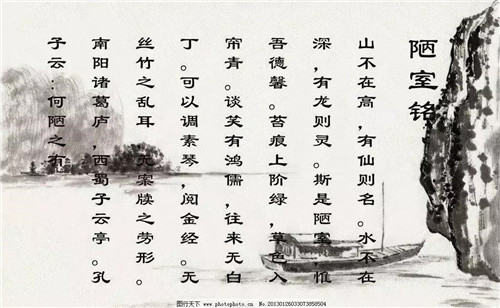 陋室铭
山不在高，有仙则名。水不在
深，有龙则灵。斯是陋室，惟
吾德馨。苔痕上阶绿，草色入
帘青。谈笑有鸿儒，往来无白
丁。可以调素琴，阅金经。无
丝竹之乱耳 无案牍之劳形。
南阳诸葛庐，西蜀子云亭。孔
子云：何陋之有
图行天下 www.photophoto.cn No.20130126033073858504